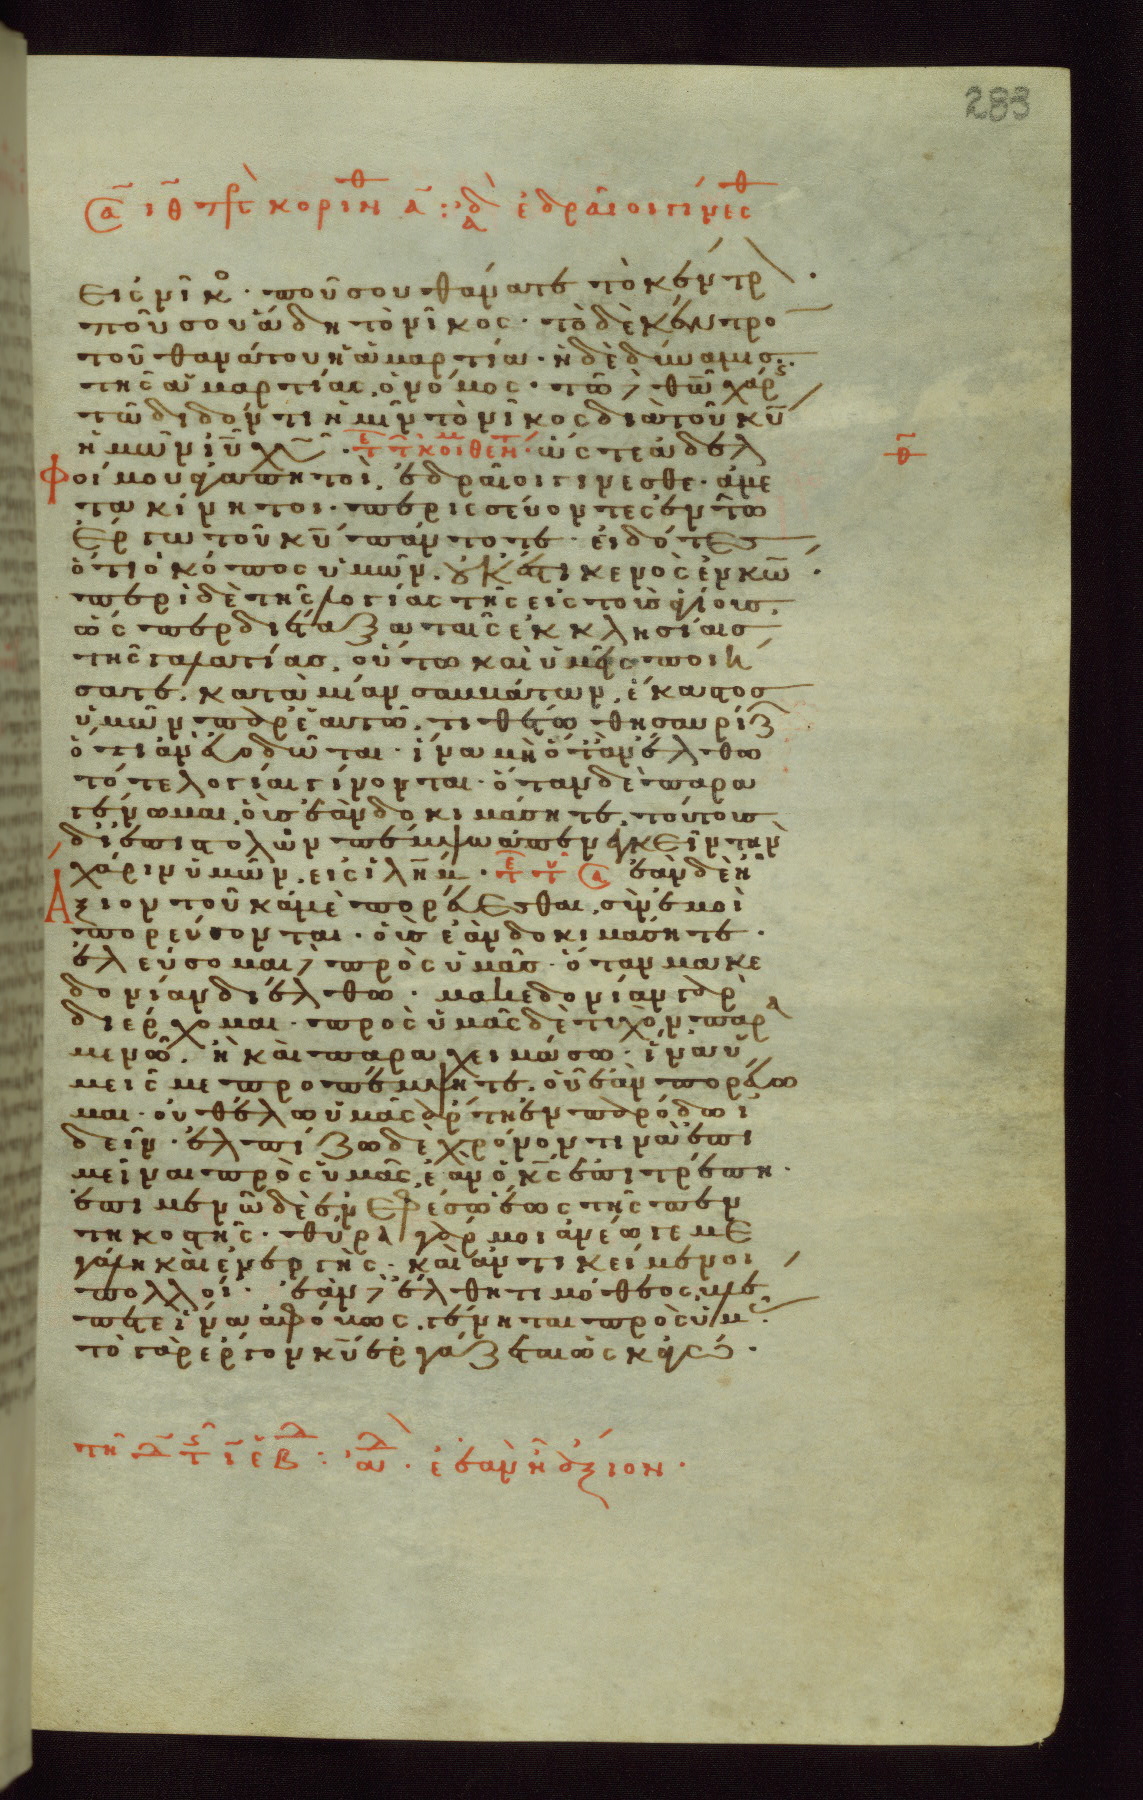 283
εἰς νῖκος· ποῦ σου θάνατε τὸ κέντρ
ποῦ σου ἅδη τὸ νῖκος· τὸ δὲ κέντρο
τοῦ θανάτου ἡ ἁμαρτία· ἡ δὲ δύναμις
τῆς ἁμαρτίας, ὁ νόμος· τῶ θω χάρ
τῶ διδόντι ἡμῖν τὸ νῖκος διὰ τοῦ κυ
ἡμῶν ιυ χυ· ὥστε ἀδελ
φοί μου ἀγαπητοί, ἑδραῖοι γίνεσθε· ἀμε
τακίνητοι· περισσεύοντες ἐν τῶ
ἔργω τοῦ κυ πάντοτε· εἰδότες
ὅτι ὁ κόπος ὑμῶν, οὐκ ἔστι κενὸς ἐν κω·
περὶ δὲ τῆς λογίας τῆς εἰς τοὺς ἁγίους,
ὡς περ διέταξα ταῖς ἐκκλησίαις
τῆς γαλατίας, οὕτω καὶ ὑμεῖς ποιή
σατε, κατὰ μίαν σαμμάτων, ἕκαστος
ὑμῶν παρ' ἑαυτῶ, τιθέτω θησαυρίζ
ὅτι ἂν εὐοδῶται· ἵνα μὴ ὅταν ἔλθω
τότε λογίαι γίνονται· ὅταν δὲ παρα
γένωμαι, οὓς ἐὰν δοκιμάσητε, τούτοις
δι' ἐπιστολῶν πέμψω ἀπενεγκεῖν τὴν
χάριν ὑμῶν, εἰς ιλημ· ἐὰν δὲ ἦ
ἄξιον τοῦ κἀμὲ πορεύεσθαι, σὺν ἐμοὶ
πορεύσονται· οὓς ἐὰν δοκιμάσητε·
ἐλεύσομαι πρὸς ὑμᾶς· ὅταν μακε
δονίαν διέλθω· μακεδονίαν γὰρ
διέρχομαι· πρὸς ὑμᾶς δὲ τυχὸν παρα
μενῶ, ἢ καὶ παραχειμάσω· ἵνα ὑ
μεῖς με προπέμψητε, οὗ ἐὰν πορεύω
μαι· οὐ θέλω ὑμᾶς ἄρτι ἐν παρόδω ἰ
δεῖν· ἐλπίζω δὲ χρόνον τινὰ ἐπι
μεῖναι πρὸς ὑμᾶς, ἐὰν ὁ κς ἐπιτρέπη·
ἐπιμενῶ δὲ ἐν ἐφέσω ἕως τῆς πεν
τηκοστῆς· θύρα γάρ μοι ἀνέωγε με
γάλη καὶ ἐνεργής· καὶ ἀντικείμενοι
πολλοί· ἐὰν ἔλθη τιμόθεος, βλέ
πετε ἵνα ἀφόβως γένηται πρὸς ὑμᾶς·
τὸ γὰρ ἔργον κυ ἐργάζεται ὡς κἀγώ·